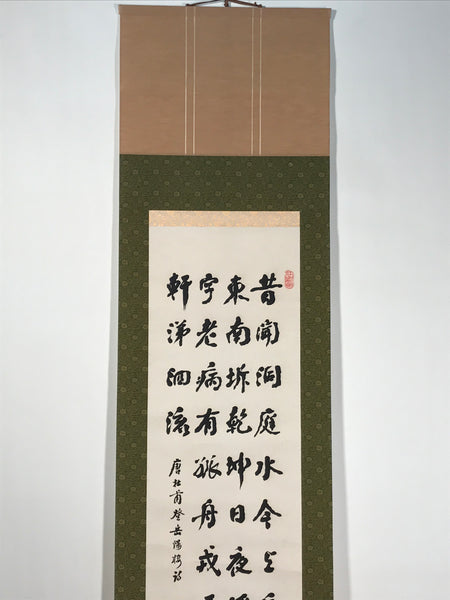 昔聞洞庭水今上
東南坼乾坤日夜
字老病有孤舟戎
軒涕泗流
唐杜甫登岳陽樓詩